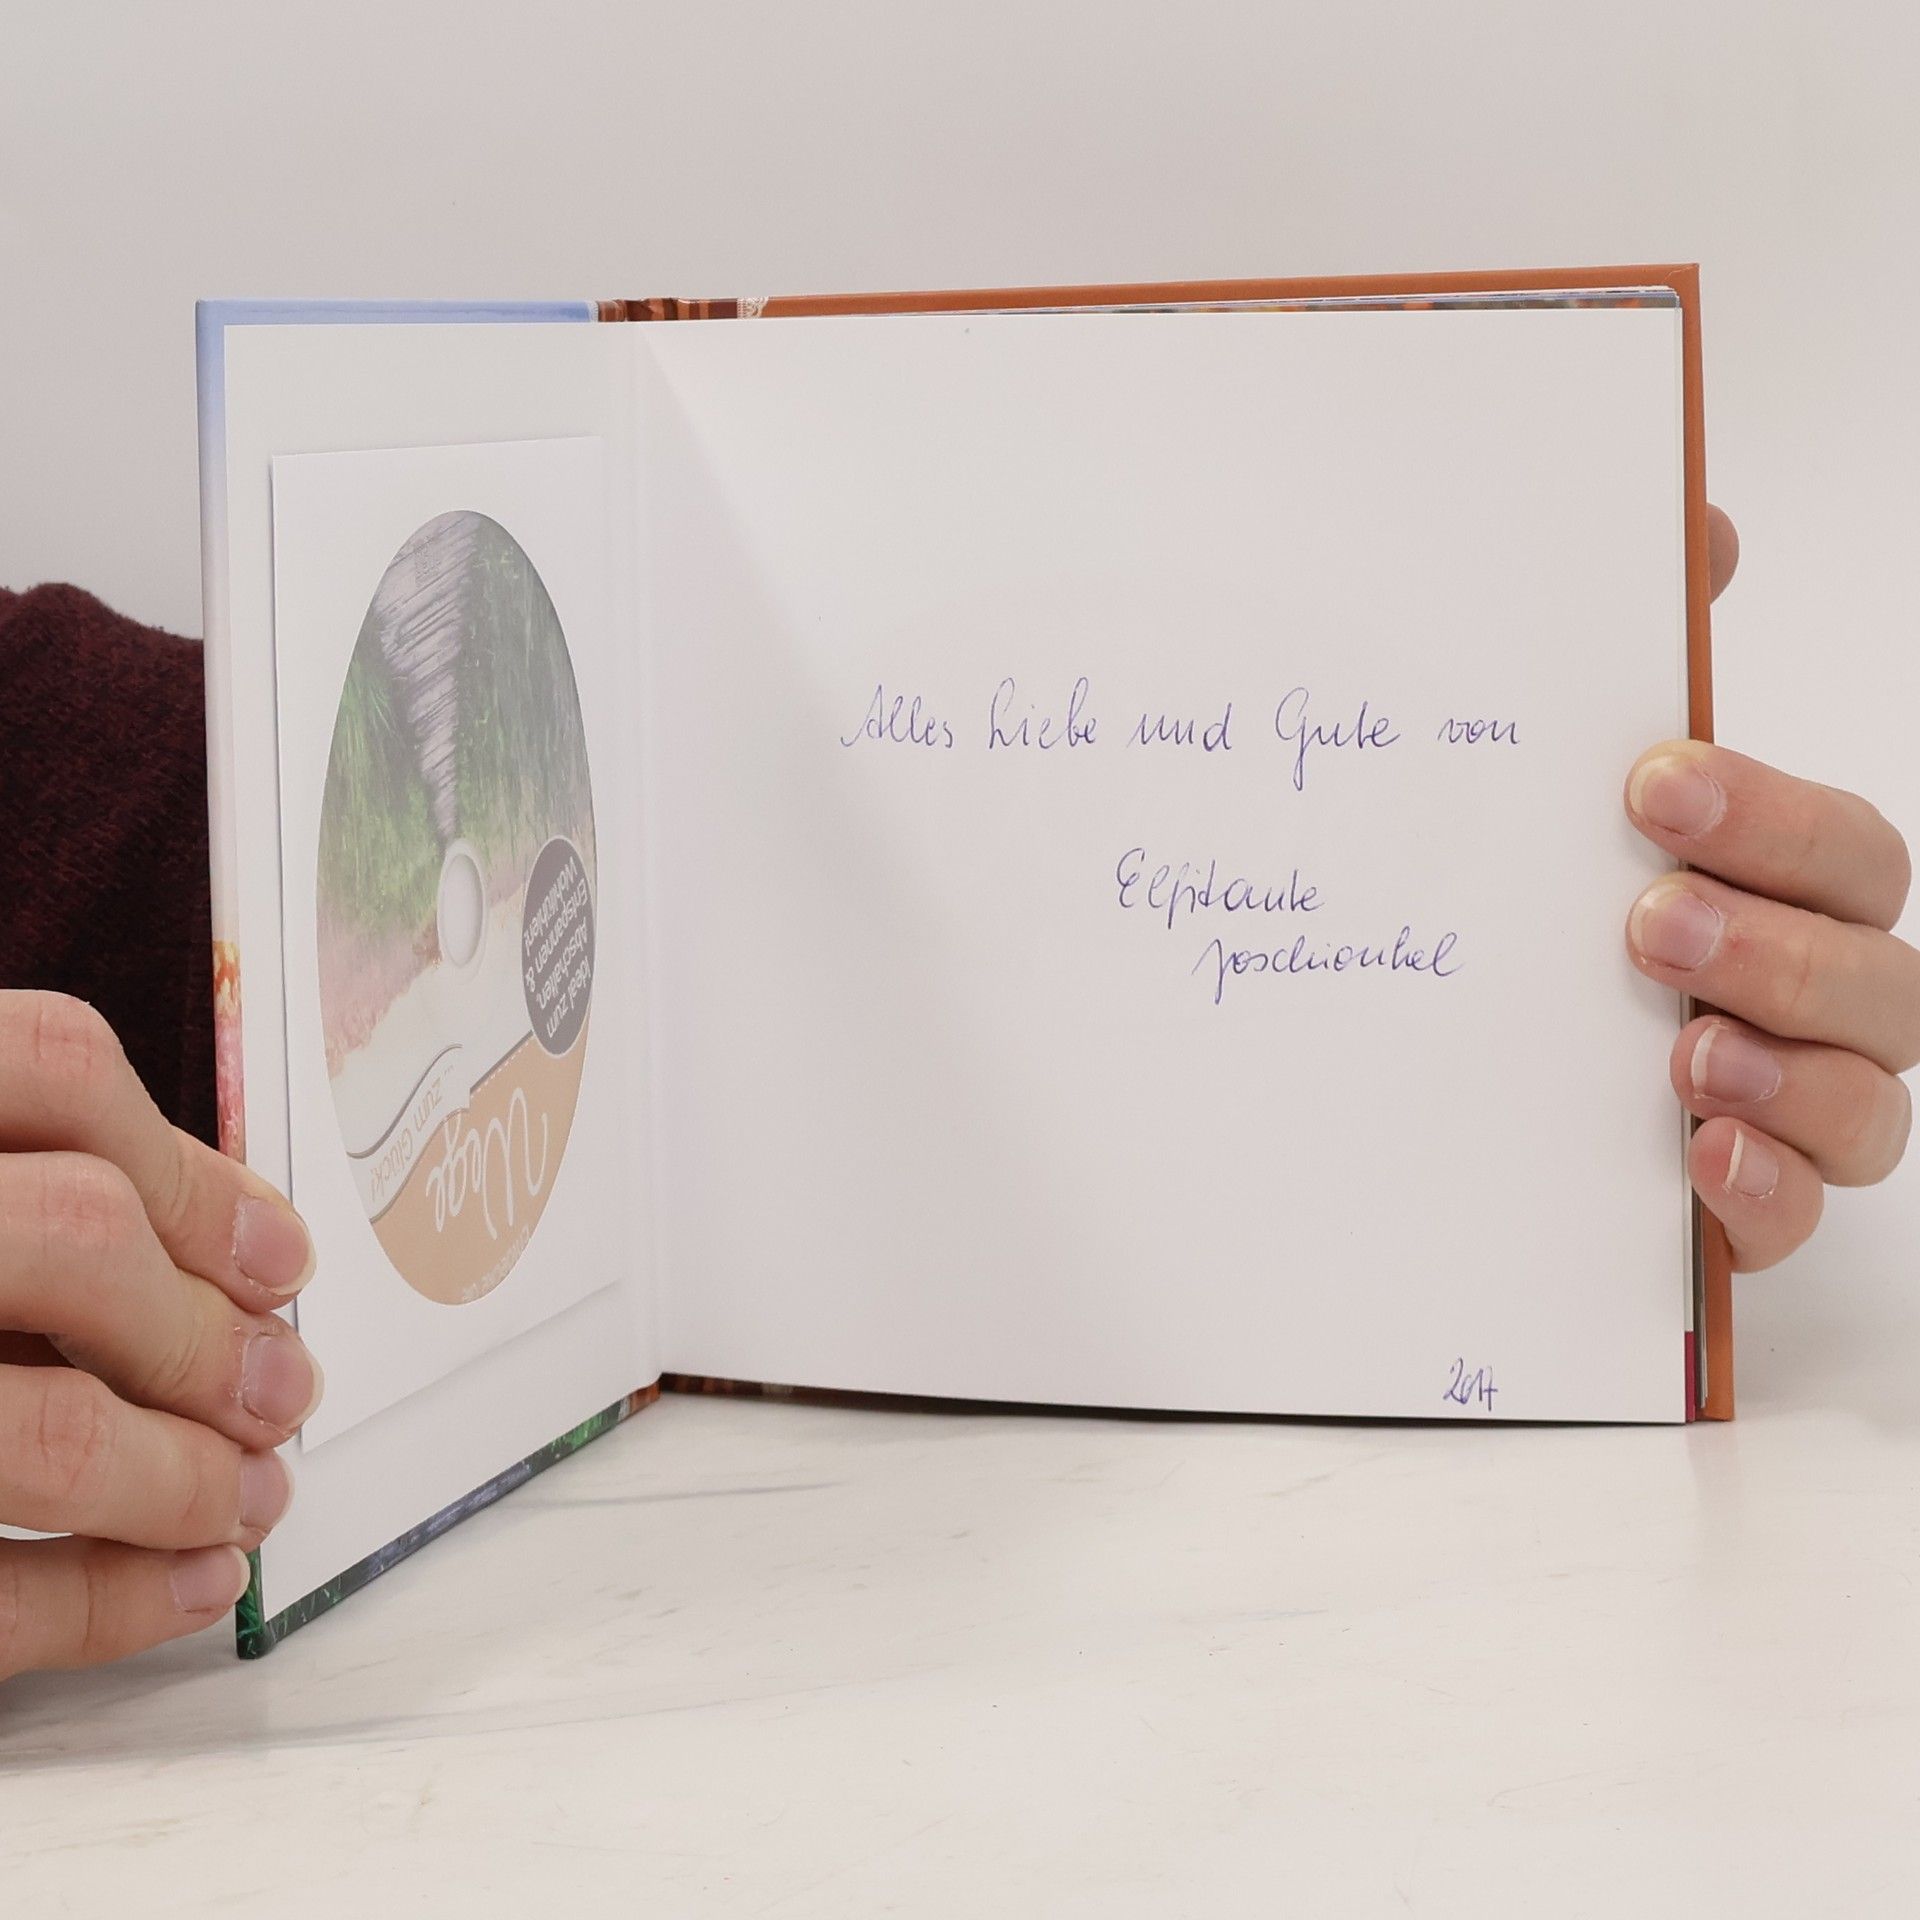 Alles Liebe und Gute von
Elfitante
Joschionkel
2017
Wege
... zum Glück!
Ideal zum
Abschalten,
Entspannen &
Wohlfühlen!